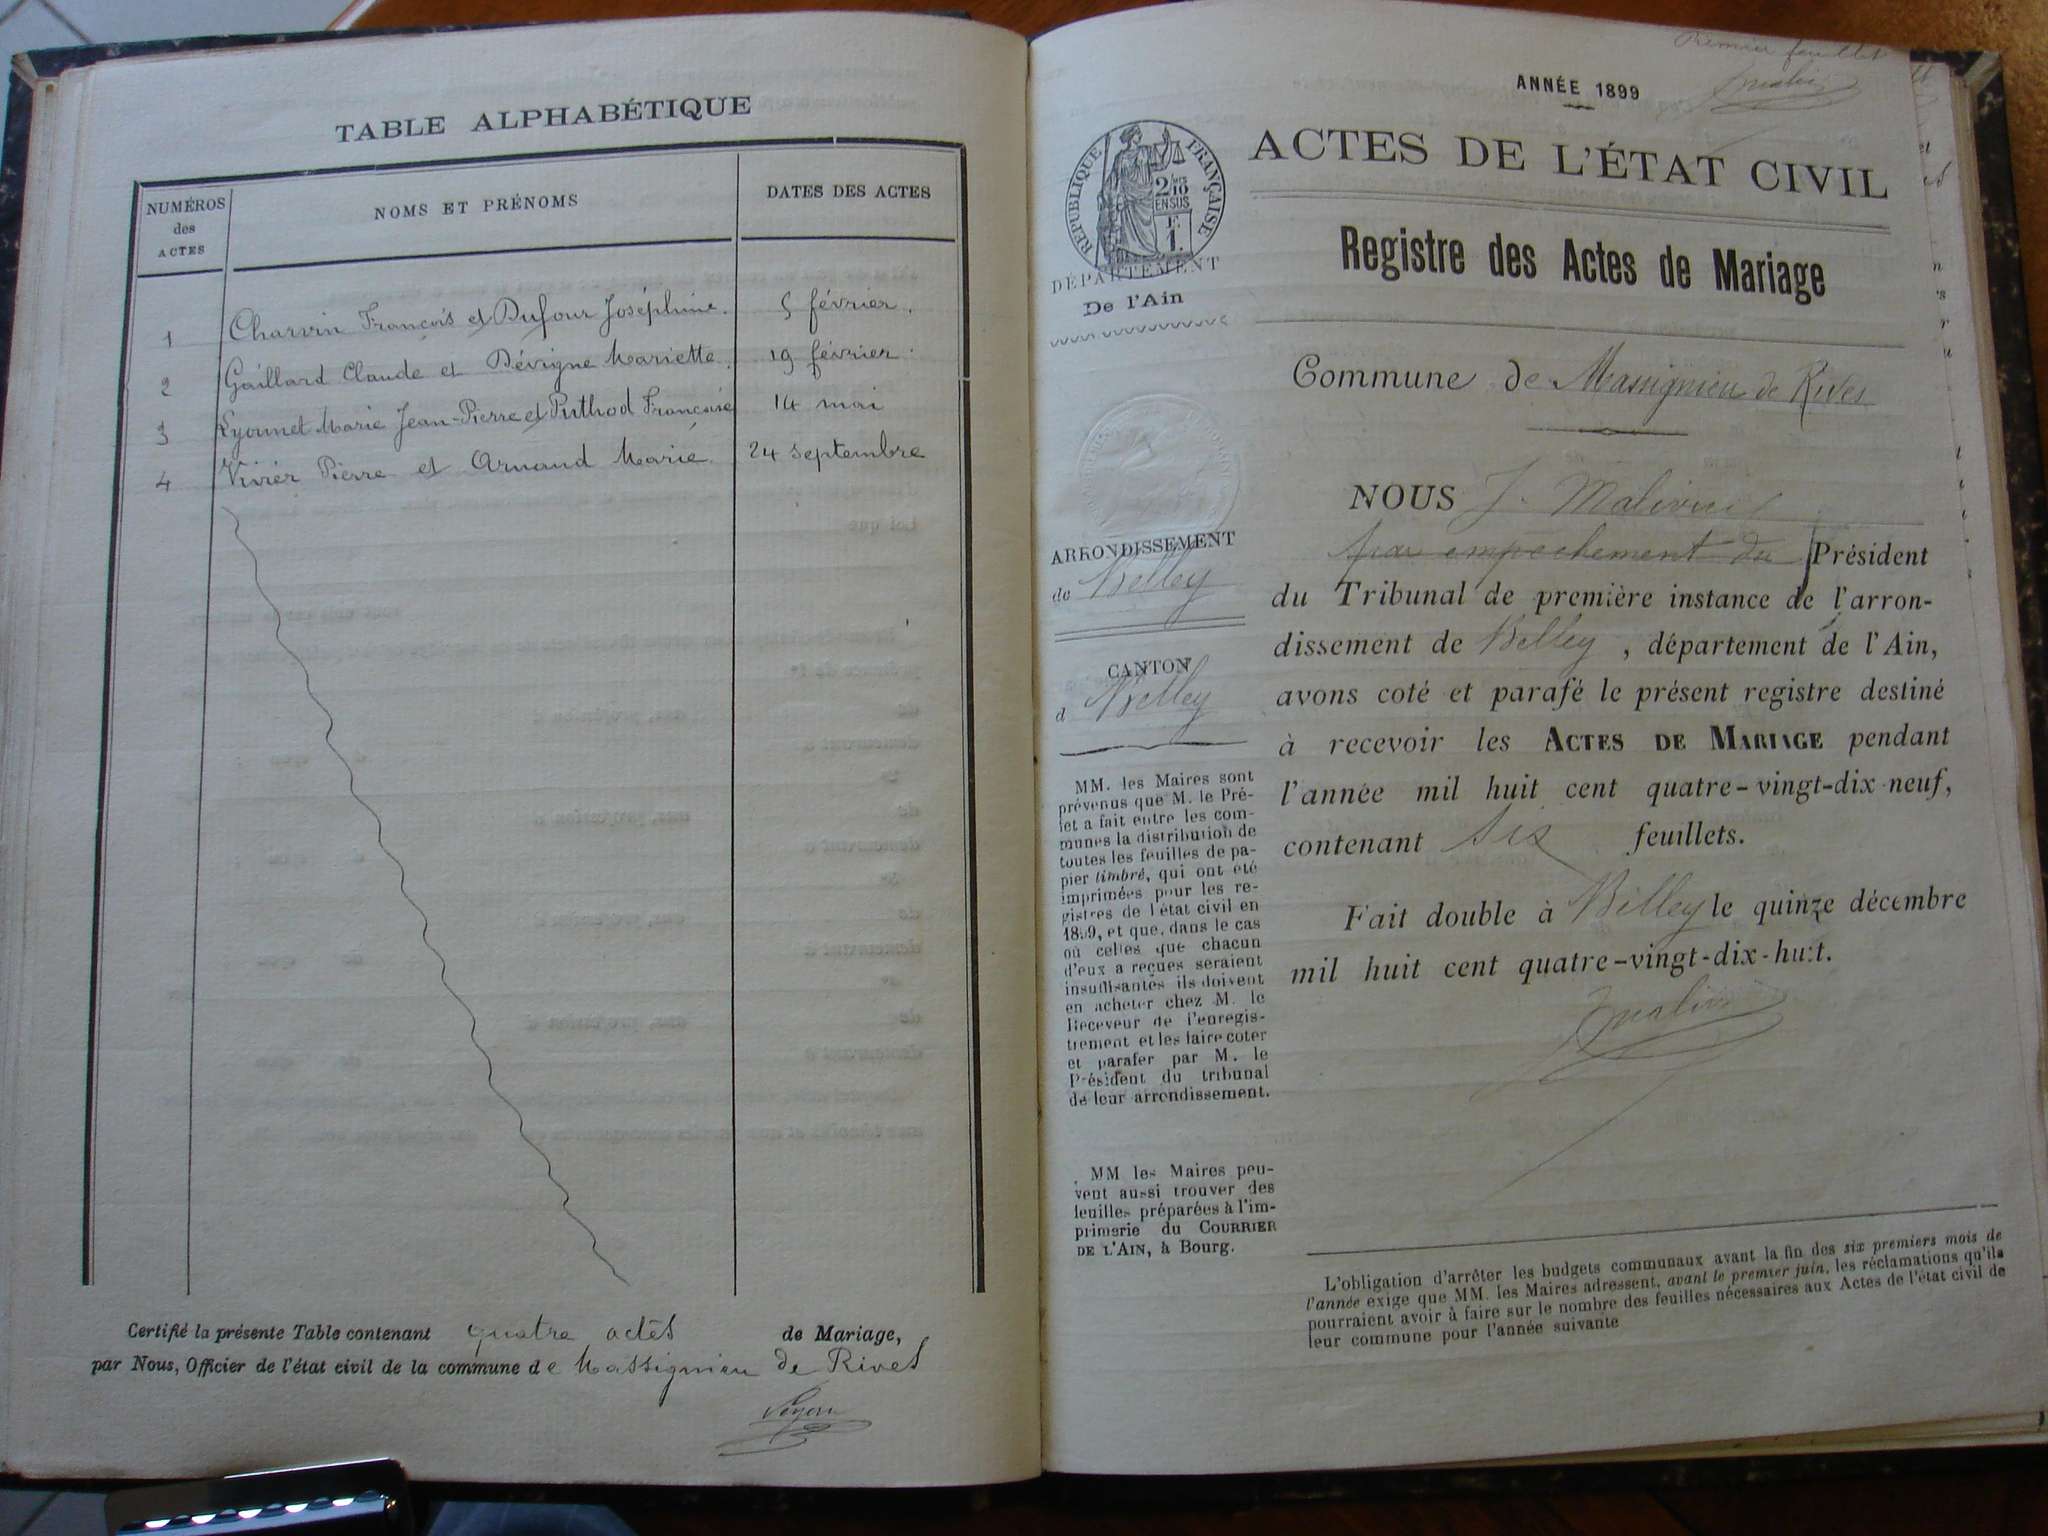 TABLE ALPHABÉTIQUE
NUMÉROS des ACTES
NOMS ET PRÉNOMS
DATES DES ACTES
1 Charvin François et Dufour Joséphine. 5 février.
2 Gaillard Claude et Dévigne Mariette. 19 février.
3 Lyonnet Marie Jean-Pierre et Puthod Françoise 14 mai
4 Vivier Pierre et Arnaud Marie. 24 septembre
Certifié la présente Table contenant quatre actes de Mariage,
par Nous, Officier de l'état civil de la commune de Massignieu de Rives
Premier feuillet
ANNÉE 1899
ACTES DE L'ÉTAT CIVIL
RÉPUBLIQUE FRANÇAISE
2/10 EN SUS
F. 1.
DÉPARTEMENT
De l'Ain
Registre des Actes de Mariage
Commune de Massignieu de Rives
ARRONDISSEMENT
de Belley
CANTON
d Belley
MM. les Maires sont
prévenus que M. le Pré-
fet a fait entre les com-
munes la distribution de
toutes les feuilles de pa-
pier timbré, qui ont été
imprimées pour les re-
gistres de l'état civil en
1899, et que, dans le cas
où celles que chacun
d'eux a reçues seraient
insuffisantes ils doivent
en acheter chez M. le
Receveur de l'enregis-
trement et les faire coter
et parafer par M. le
Président du tribunal
de leur arrondissement.
MM les Maires peu-
vent aussi trouver des
feuilles préparées à l'im-
primerie du COURRIER
DE L'AIN, à Bourg.
NOUS J.
par empechement du Président
du Tribunal de première instance de l'arron-
dissement de Belley, département de l'Ain,
avons coté et parafé le présent registre destiné
à recevoir les ACTES DE MARIAGE pendant
l'année mil huit cent quatre-vingt-dix-neuf,
contenant six feuillets.
Fait double à Belley le quinze décembre
mil huit cent quatre-vingt-dix-huit.
L'obligation d'arrêter les budgets communaux avant la fin des six premiers mois de
l'année exige que MM. les Maires adressent, avant le premier juin, les réclamations qu'ils
pourraient avoir à faire sur le nombre des feuilles nécessaires aux Actes de l'état civil de
leur commune pour l'année suivante